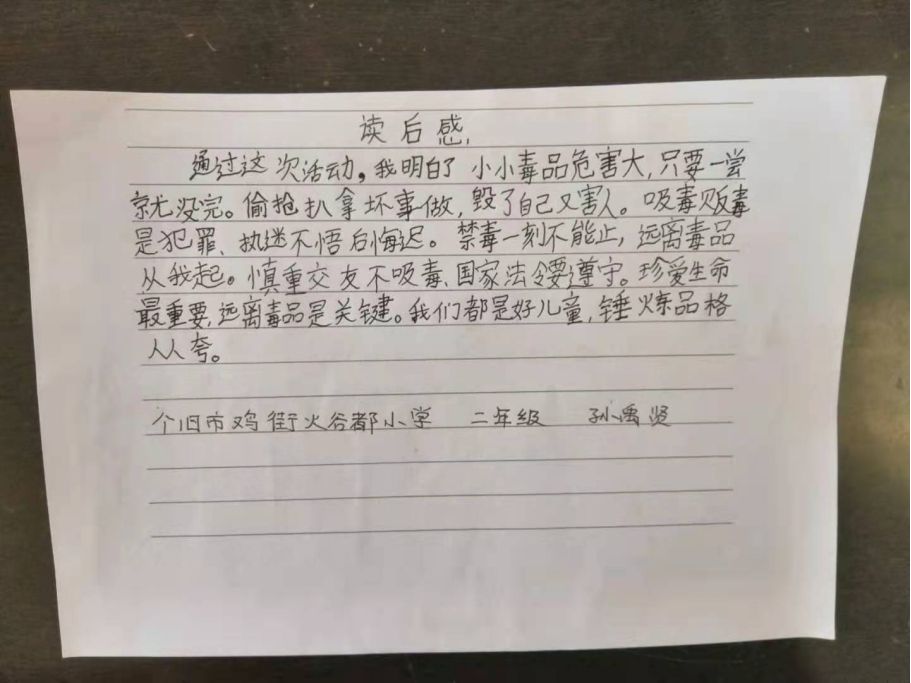 读后感
通过这次活动，我明白了小小毒品危害大，只要一尝
就没完。偷抢扒拿坏事做，毁了自己又害人。吸毒贩毒
是犯罪、执迷不悟后悔迟。禁毒一刻不能止，远离毒品
从我起。慎重交友不吸毒、国家法令要遵守。珍爱生命
最重要，远离毒品是关键。我们都是好儿童，锤炼品格
人人夸。
个旧市鸡街火谷都小学 二年级 孙禹贤